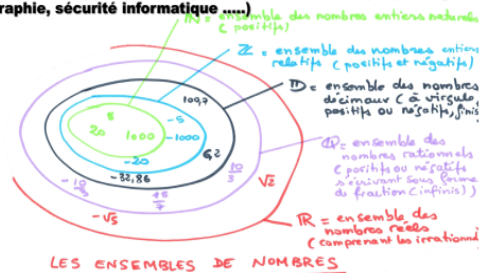 raphie, sécurité informatique .....)
ℕ = ensemble des nombres entiers naturels
(positifs)
ℤ = ensemble des nombres entiers
relatifs (positifs et négatifs)
𝔻 = ensemble des nombres
décimaux (à virgule,
positifs ou négatifs, finis
ℚ = ensemble des
nombres rationnels
(positifs ou négatifs
s'écrivant sous forme
de fraction (infinis))
ℝ = ensemble des
nombres réels
(comprenant les irrationne
8
20
1000
-5
-1000
-20
100,7
6,2
-32,86
10/3
√2
-√5
LES ENSEMBLES DE NOMBRES